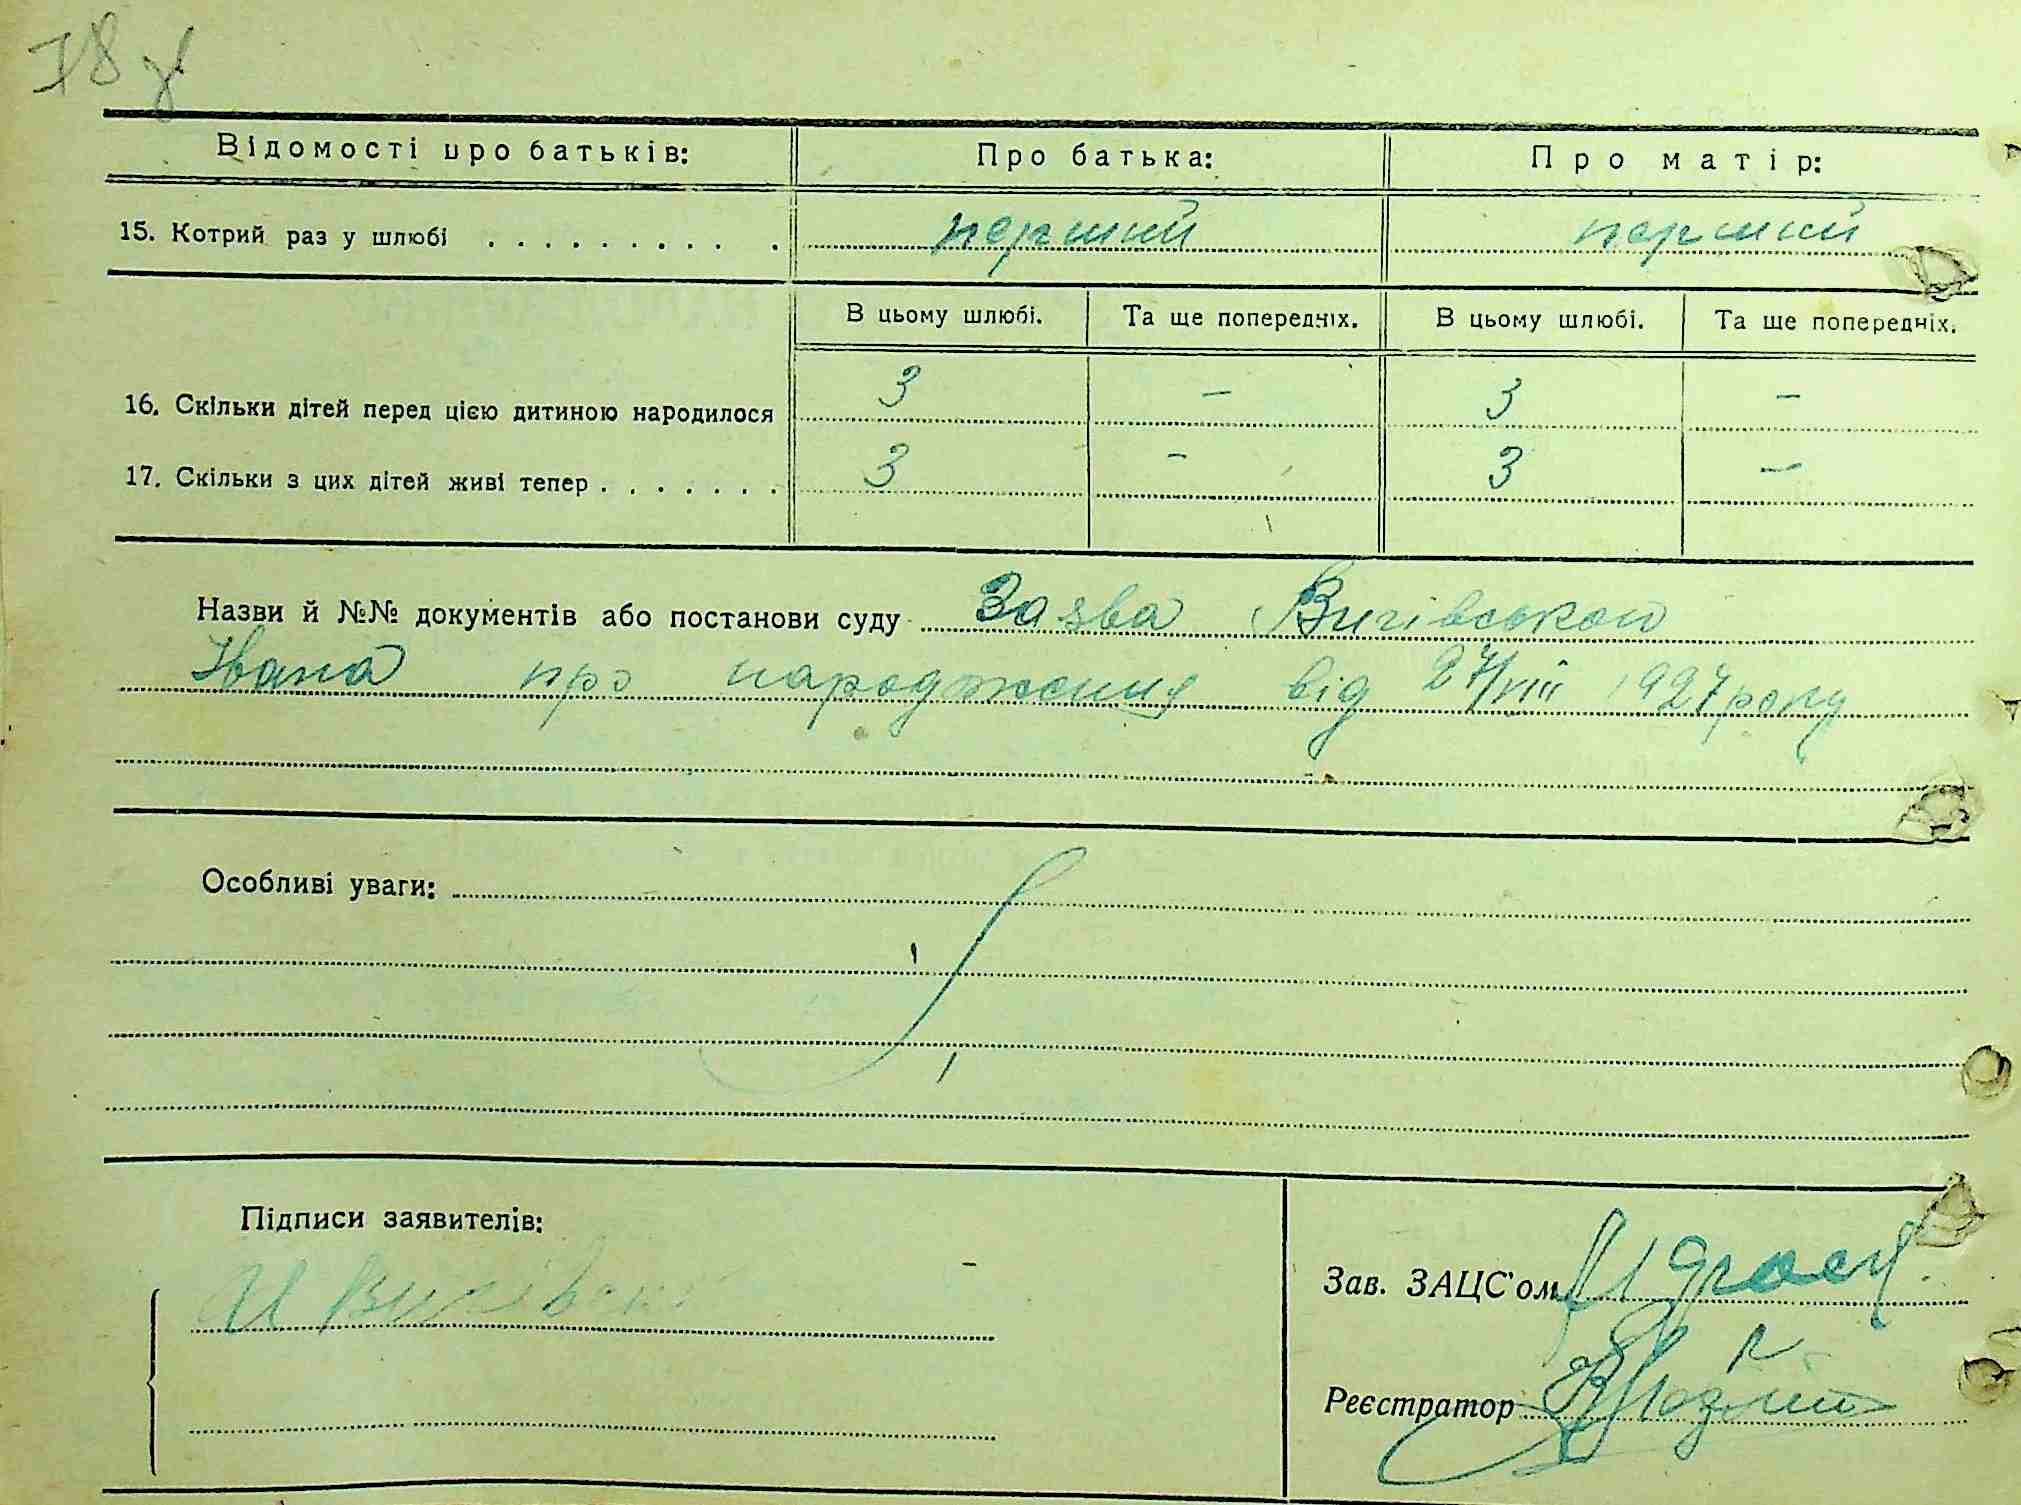 78
Відомості про батьків: Про батька: Про матір:
15. Котрий раз у шлюбі . . . . . . . . . . перший перший
В цьому шлюбі. Та ще попередніх. В цьому шлюбі. Та ще попередніх.
16. Скільки дітей перед цією дитиною народилося 3 – 3 –
17. Скільки з цих дітей живі тепер . . . . . . . 3 – 3 –
Назви й №№ документів або постанови суду Заява
Івана про народження від 27/VIII 1927 року
Особливі уваги:
Підписи заявителів:
Зав. ЗАЦС'ом
Реєстратор